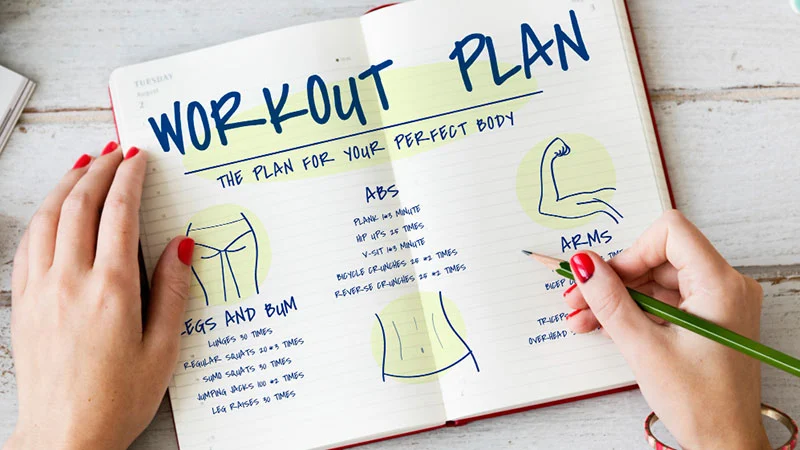 TUESDAY
August
2
WORKOUT PLAN
THE PLAN FOR YOUR PERFECT BODY
LEGS AND BUM
LUNGES 30 TIMES
REGULAR SQUATS 20 *3 TIMES
SUMO SQUATS 30 TIMES
JUMPING JACKS 100 *2 TIMES
LEG RAISES 30 TIMES
ABS
PLANK 1*3 MINUTE
HIP UPS 25 TIMES
V-SIT 1*3 MINUTE
BICYCLE CRUNCHES 25 *2 TIMES
REVERSE CRUNCHES 25 *2 TIMES
ARMS
BICEP
TRICEPS
OVERHEAD